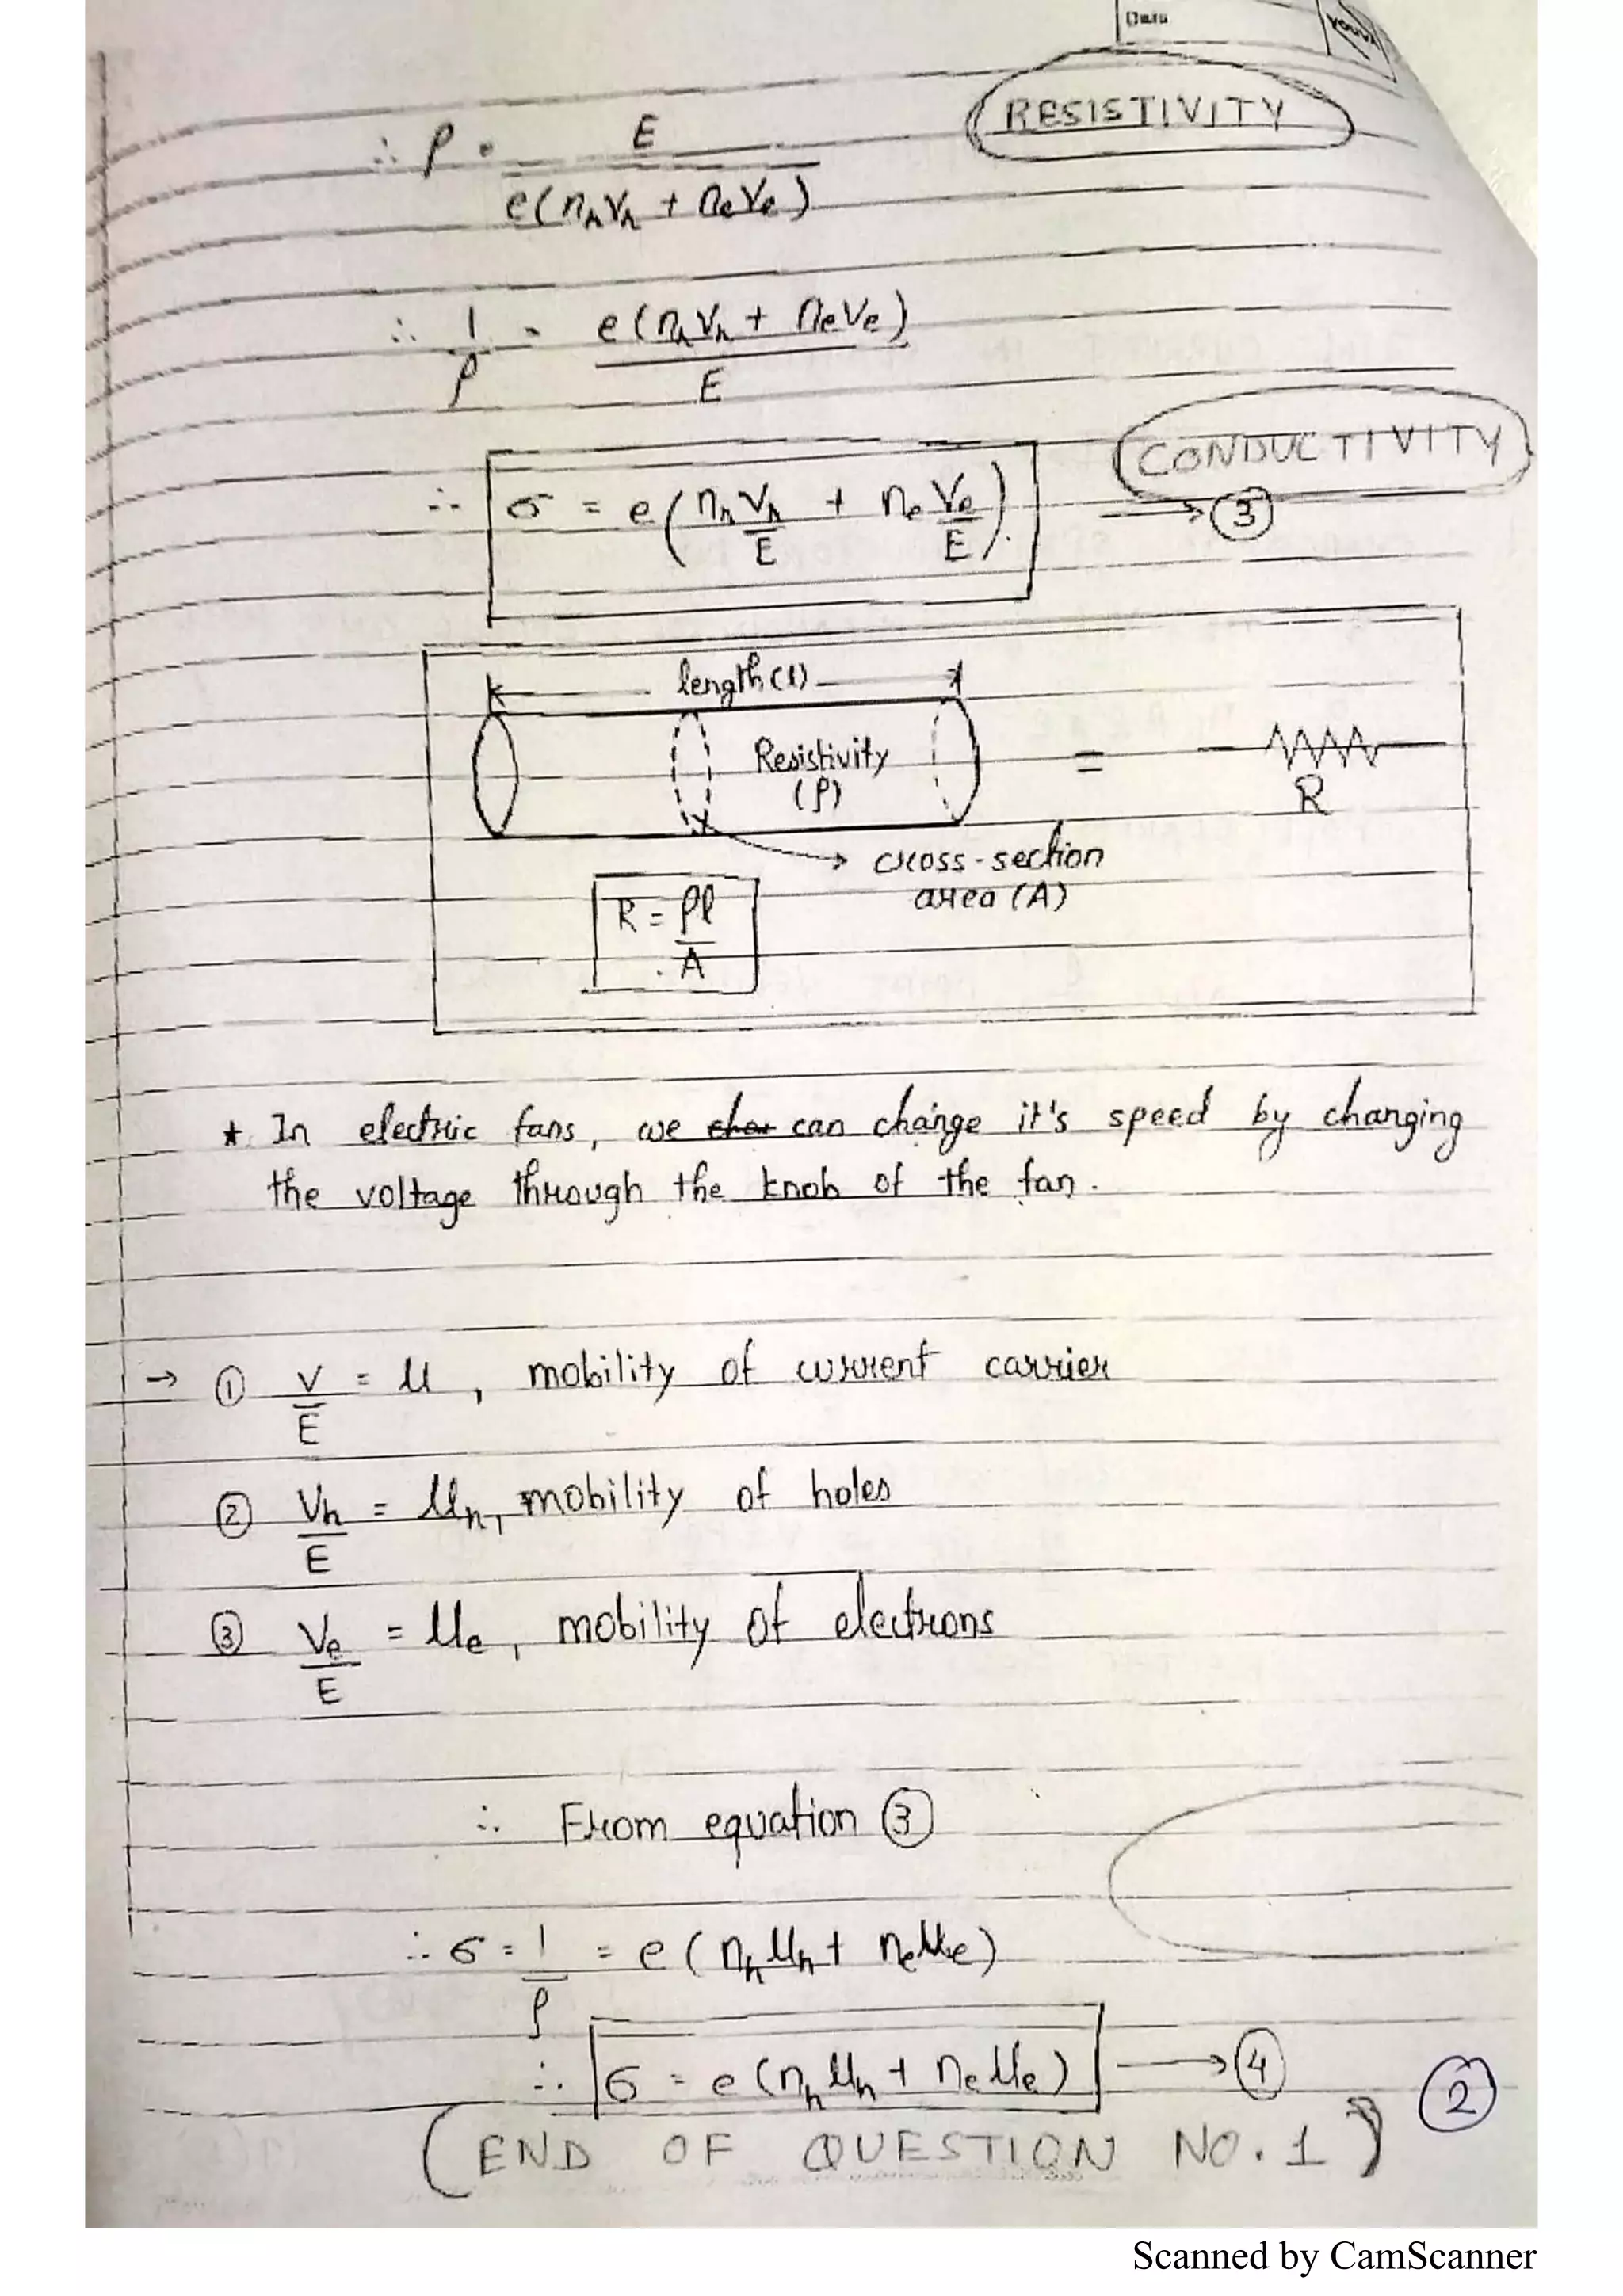 Date
YOUVA
RESISTIVITY
∴ ρ = E / e(nₕvₕ + nₑvₑ)
∴ 1/ρ = e(nₕvₕ + nₑvₑ) / E
CONDUCTIVITY
∴ σ = e(nₕ vₕ/E + nₑ vₑ/E) → ③
length (l)
Resistivity
(ρ)
=
R
cross-section
area (A)
R = ρl/A
* In electric fans, we char can change it's speed by changing
the voltage through the knob of the fan.
→ ① v/E = μ, mobility of current carrier
② vₕ/E = μₕ, mobility of holes
③ vₑ/E = μₑ, mobility of electrons
∴ From equation ③
∴ σ = 1/ρ = e(nₕμₕ + nₑμₑ)
∴ σ = e(nₕμₕ + nₑμₑ) → ④
②
(END OF QUESTION NO. 1)
Scanned by CamScanner